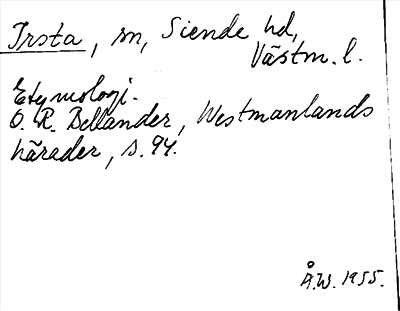 Irsta, sn, Siende hd,
Västm. l.
Etymologi.
O. R. Bellander, Westmanlands
härader, s. 94.
Å.W. 1955.